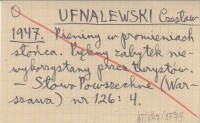 UFNALEWSKI Czesław
1947. Pieniny w promieniach
słońca. Piękny zabytek nie-
wykorzystany przez turystów.
— Słowo Powszechne (War-
szawa) nr 126: 4.